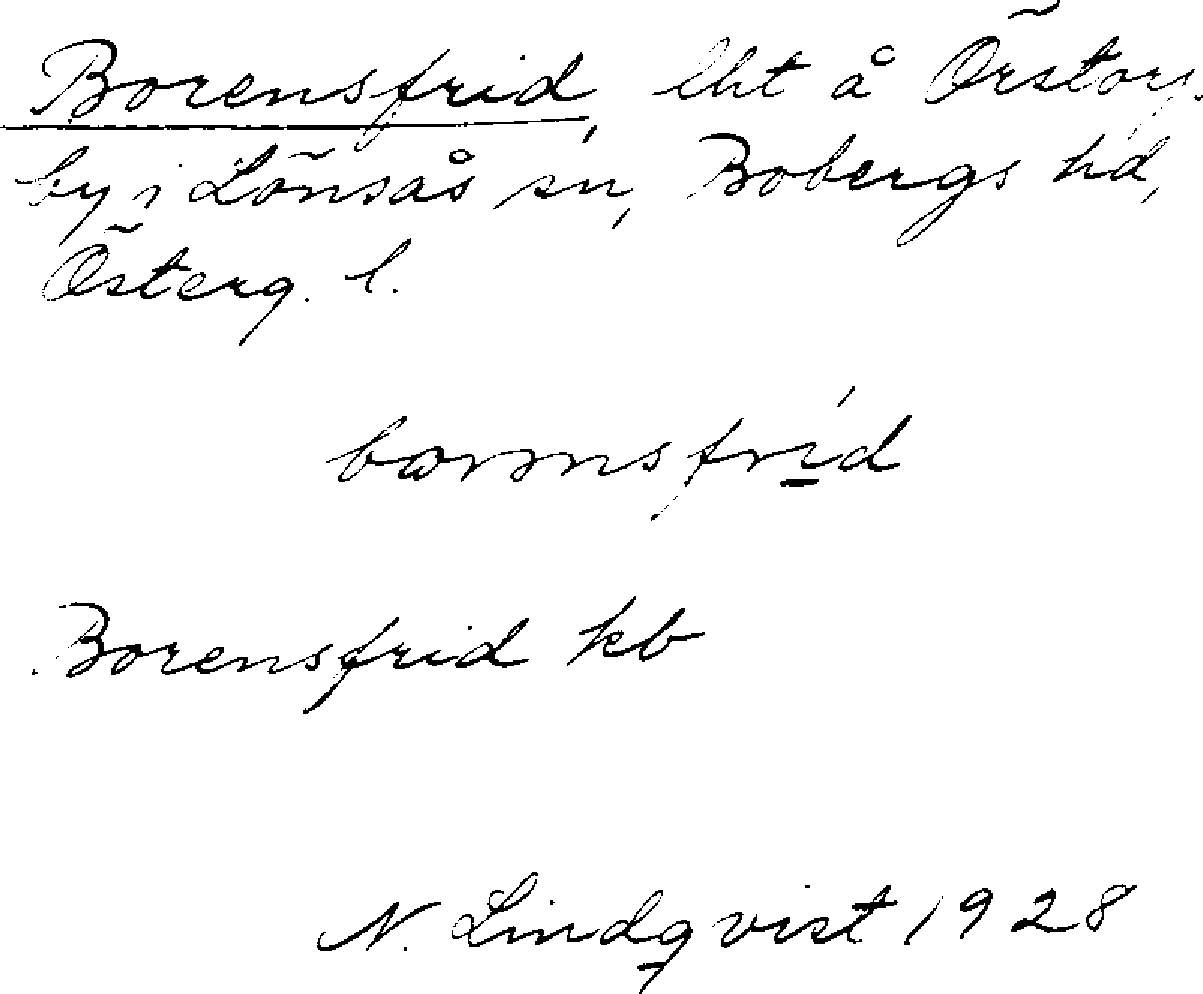 Borensfrid, lht å Örstorp
by i Lönsås sn, Bobergs hd,
Österg. l.
Borensfrid kb
N. Lindqvist 1928